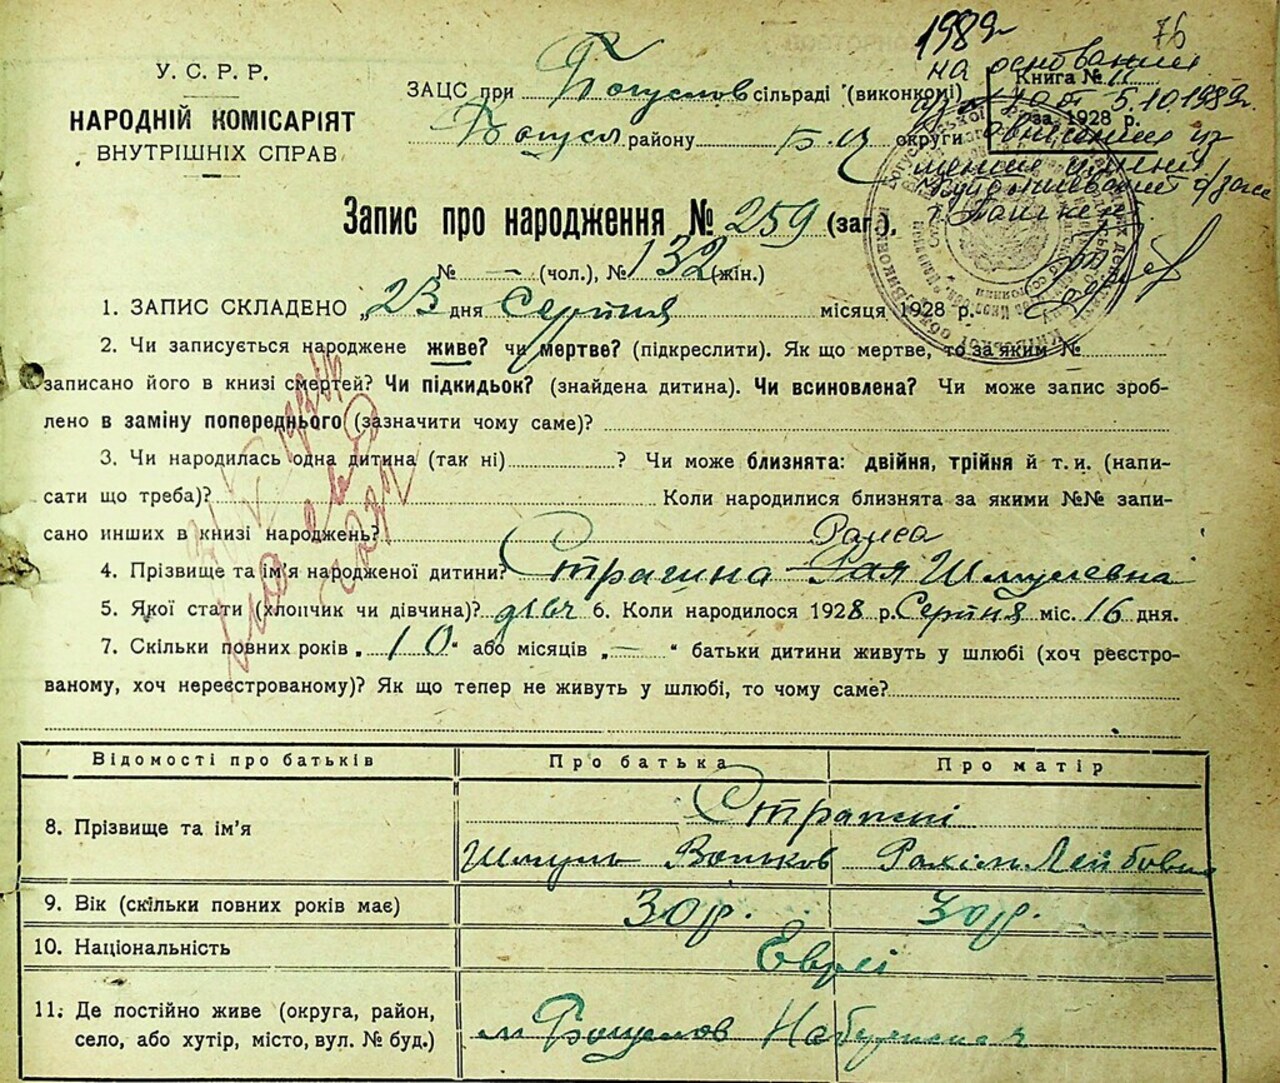 1989г 76
на основании
У. С. Р. Р.
НАРОДНІЙ КОМІСАРІЯТ
ВНУТРІШНІХ СПРАВ
ЗАЦС при Богуслов сільраді (виконкомі)
Книга № 11
за 1928 р.
5.10.1989г.
Богусл району Б-Ц округи
г. Ташкент.
Запис про народження № 259 (заг.),
№ — (чол.), № 132 (жін.)
1. ЗАПИС СКЛАДЕНО „23 дня Серпня місяця 1928 р.
2. Чи записується народжене живе? чи мертве? (підкреслити). Як що мертве, то за яким №
записано його в книзі смертей? Чи підкидьок? (знайдена дитина). Чи всиновлена? Чи може запис зроб-
лено в заміну попереднього (зазначити чому саме)?
3. Чи народилась одна дитина (так ні) ? Чи може близнята: двійня, трійня й т. и. (напи-
сати що треба)? Коли народилися близнята за якими №№ запи-
сано инших в книзі народжень?
Раиса
4. Прізвище та ім'я народженої дитини? Страгина Рая Шмулевна
5. Якої стати (хлопчик чи дівчина)? дівч 6. Коли народилося 1928 р. Серпня міс. 16 дня.
7. Скільки повних років „ 10 " або місяців „ — " батьки дитини живуть у шлюбі (хоч реєстро-
ваному, хоч нереєстрованому)? Як що тепер не живуть у шлюбі, то чому саме?
Відомості про батьків Про батька Про матір
8. Прізвище та ім'я
Шмуль Вольков Рахіль Лейбовна
9. Вік (скільки повних років має) 30 р. 30 р.
10. Національність Евреі
11. Де постійно живе (округа, район,
село, або хутір, місто, вул. № буд.) м Богуслов